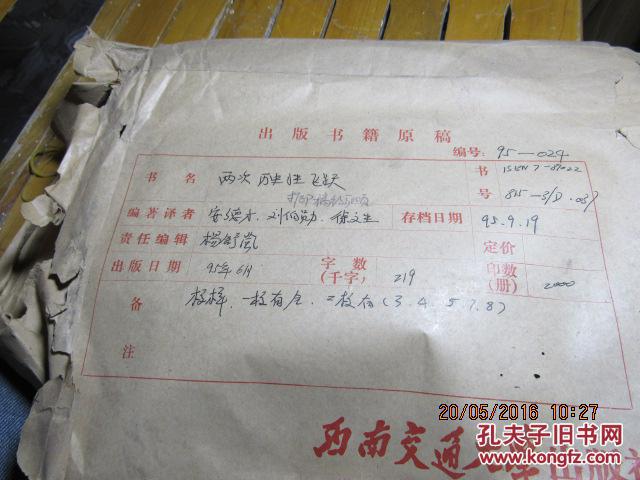 出版书籍原稿
编号: 95—024
书名 两次历史性飞跃 书号 ISBN 7-81022
815—3/D·037
编著译者 安德才、刘伯勋、徐文生 存档日期 95.9.19
责任编辑 杨舒岚 定价
出版日期 95年6月 字数(千字) 219 印数(册) 2000
备注 校样、一校有全、二校有(3.4.5.7.8)
西南交通大学出版社
20/05/2016 10:27
孔夫子旧书网
WWW.KONGFZ.COM